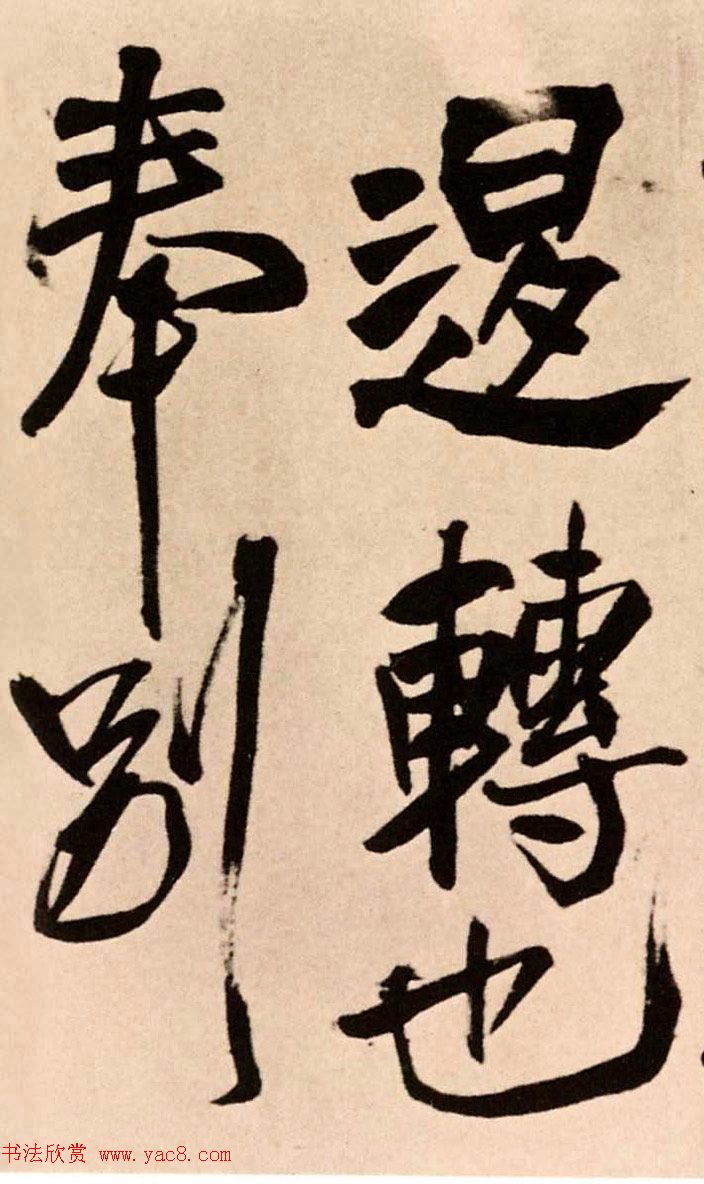 退轉也
奉別
书法欣赏 www.yac8.com